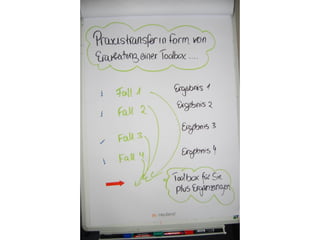 Praxistransfer in Form von
Erarbeitung einer Toolbox ....
Fall 1
Ergebnis 1
Fall 2
Ergebnis 2
Fall 3
Ergebnis 3
Fall 4
Ergebnis 4
Toolbox für Sie
plus Ergänzungen